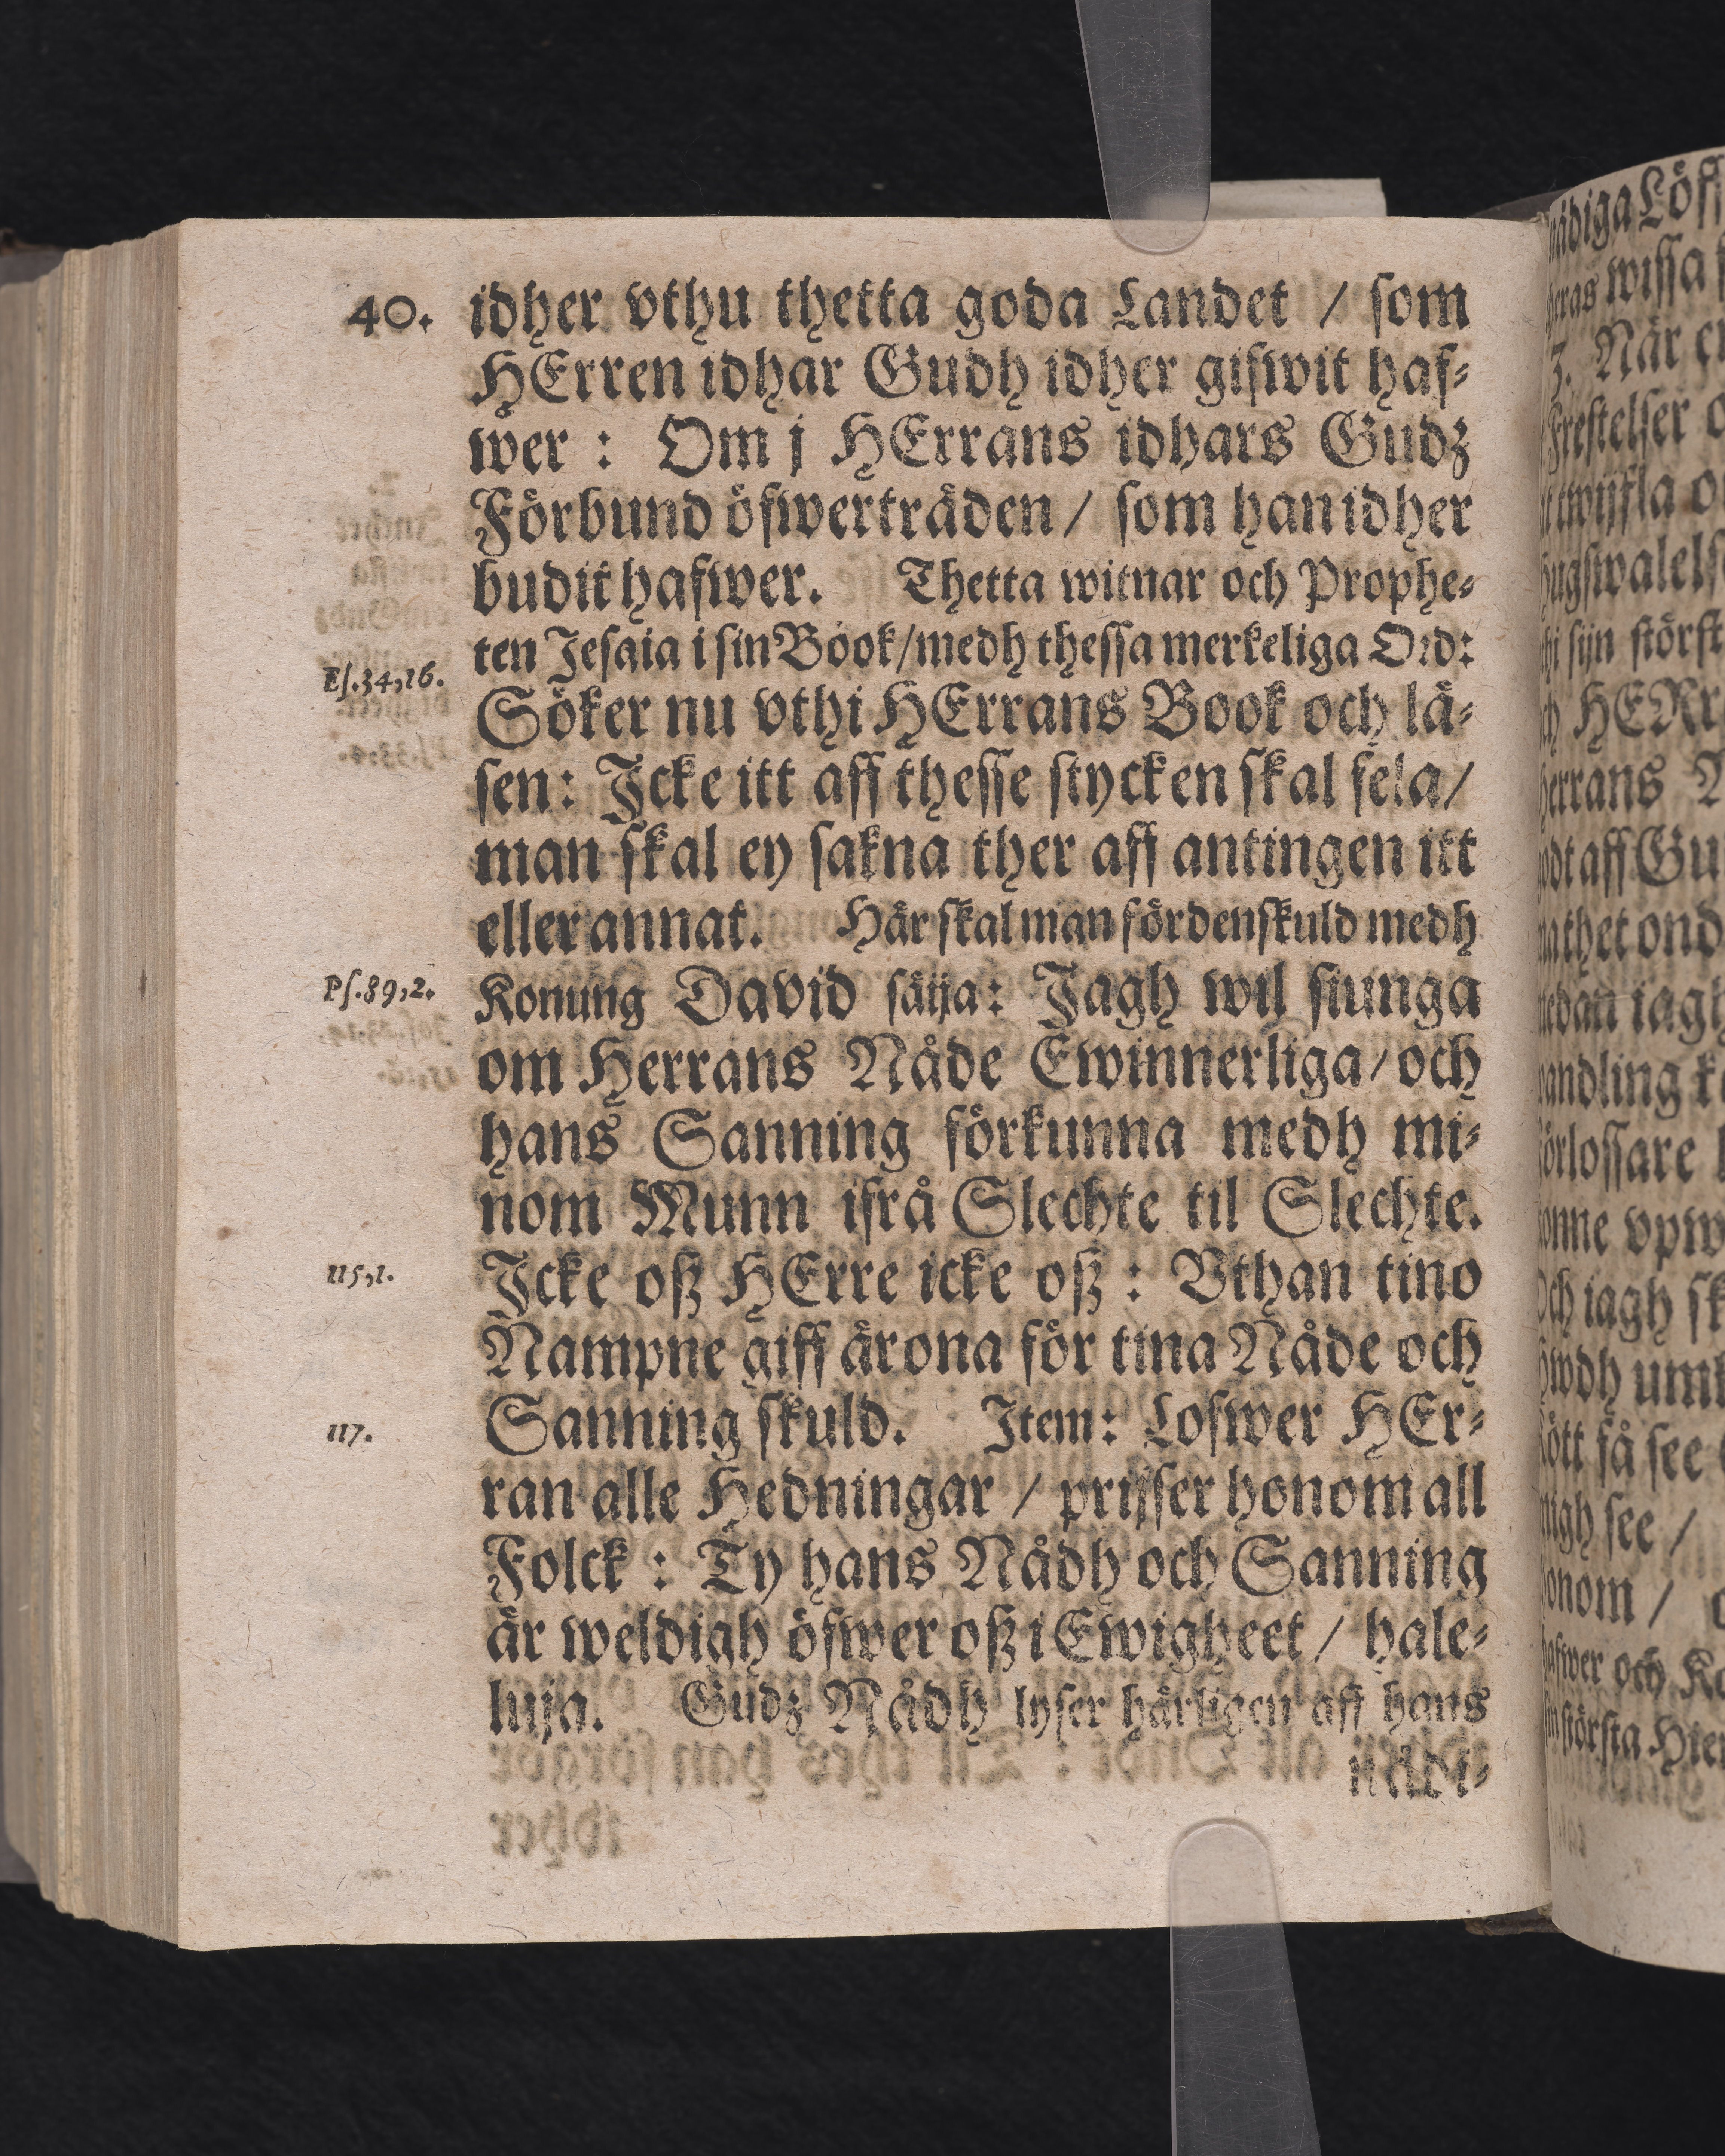 40.
idher vthu thetta goda Landet / som
HErren idhar Gudh idher gifwit haf-
wer : Om j HErrans idhars Gudz
Förbund öfwerträden / som han idher
budit hafwer. Thetta witnar och Prophe-
ten Jesaia i sin Book / medh thessa merkeliga Ord:
Es. 34, 16.
Söker nu vthi HErrans Book och lä-
sen: Jcke itt aff thesse stycken skal fela /
man skal ey sakna ther aff antingen itt
eller annat. Här skal man fördenskuld medh
Ps. 89, 2.
Konung David säija: Jagh wil siunga
om Herrans Nåde Ewinnerliga / och
hans Sanning förkunna medh mi-
nom Munn ifrå Slechte til Slechte.
115, 1.
Jcke oß HErre icke oß : Vthan tino
Nampne giff ärona för tina Nåde och
Sanning skuld. Item: Lofwer HEr-
117.
ran alle Hedningar / prijser honom all
Folck : Ty hans Nådh och Sanning
är weldigh öfwer oß i Ewigheet / hale-
luja. Gudz Nådh lyser härligen aff hans
nådi-
nådiga Löf
wissa
3. När
Frestelser
twijfla
sijn störst
HERr
herrans
aff Gu
thet ond
iagh
andling
förlossare
vpw
Och iagh sk
få see
migh see /
honom /
hafwer och
största